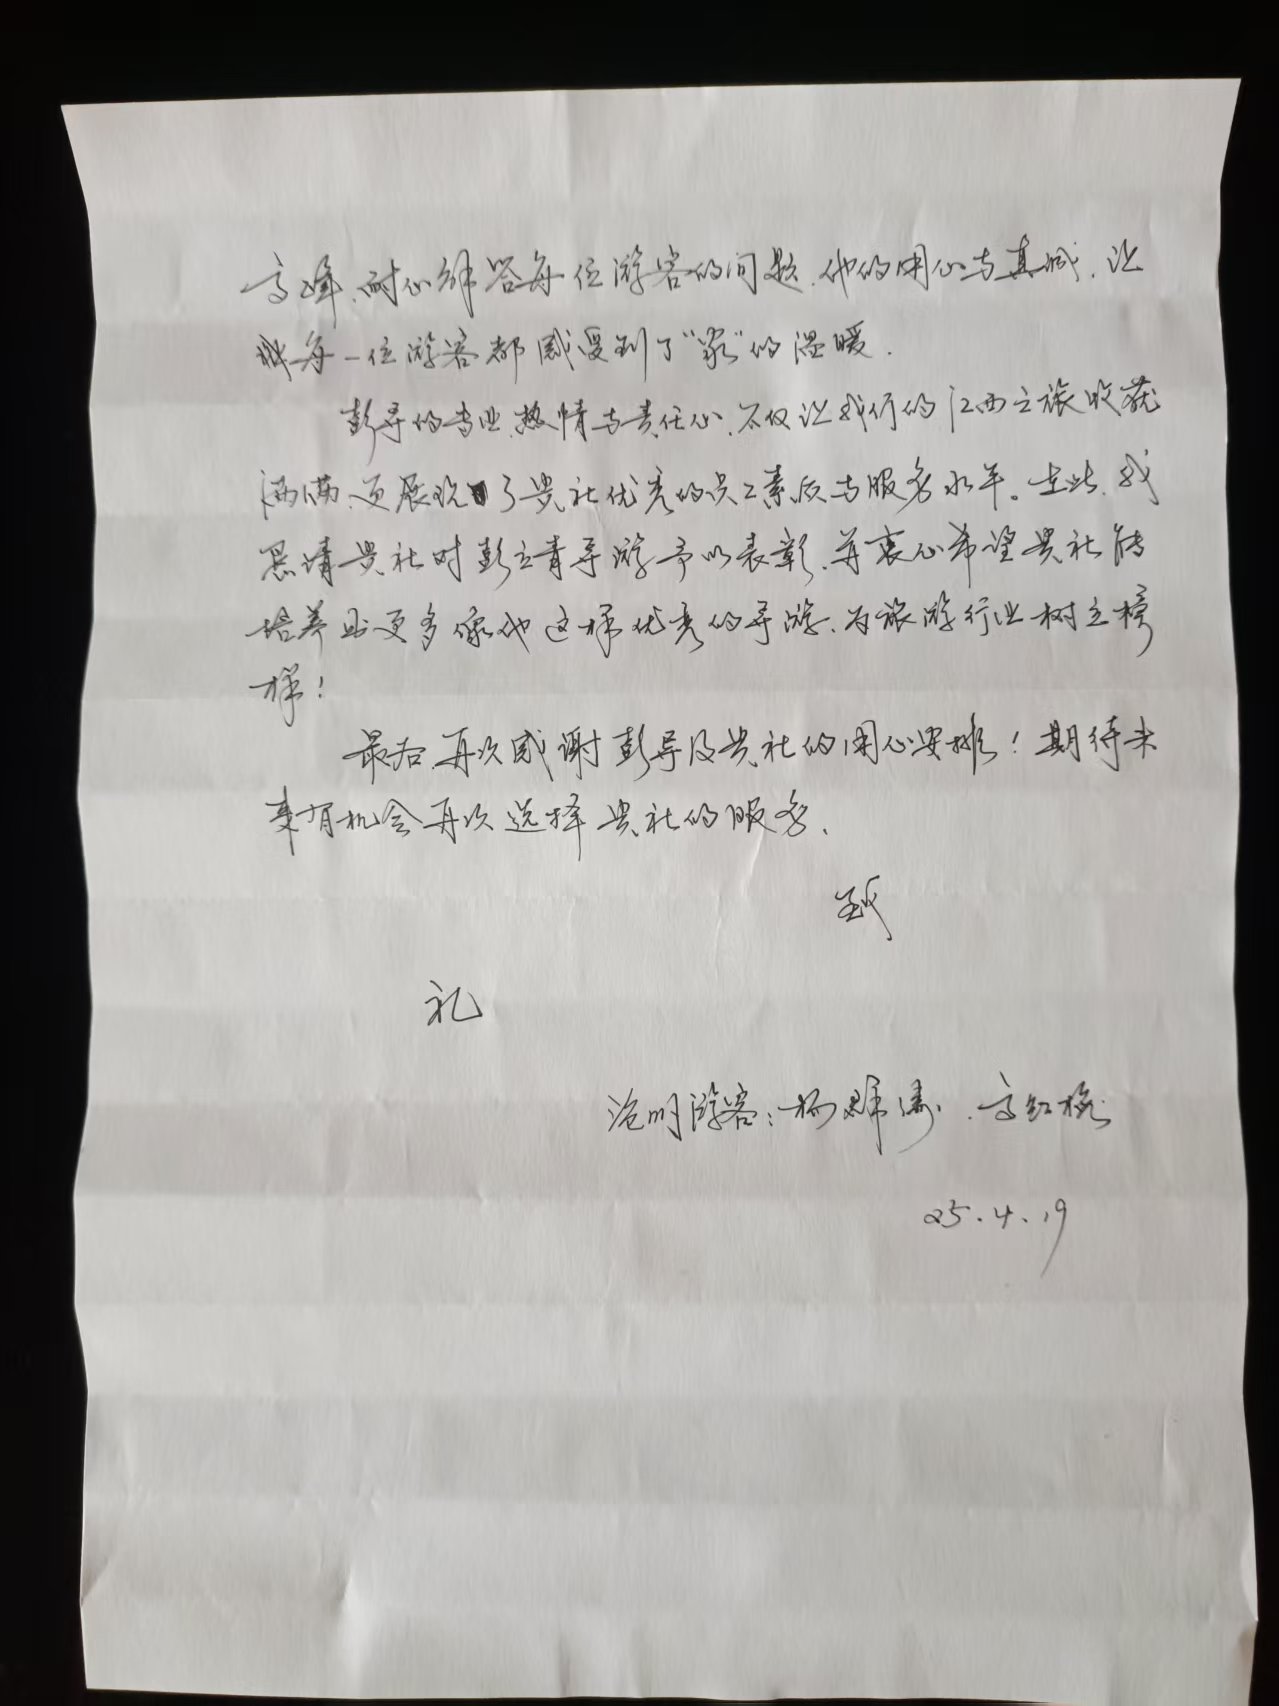 高峰,耐心解答每位游客的问题,他的用心与真诚,让
我每一位游客都感受到了“家”的温暖.
彭导的专业,热情与责任心,不仅让我们的江西之旅收获
满满,更展现了贵社优秀的员工素质与服务水平。在此,我
恳请贵社对彭立青导游予以表彰,并衷心希望贵社能
培养出更多像他这样优秀的导游,为旅游行业树立榜
样!
最后,再次感谢彭导及贵社的用心安排!期待未
来有机会再次选择贵社的服务.
致
礼
游客:杨 、高红梅
25.4.19